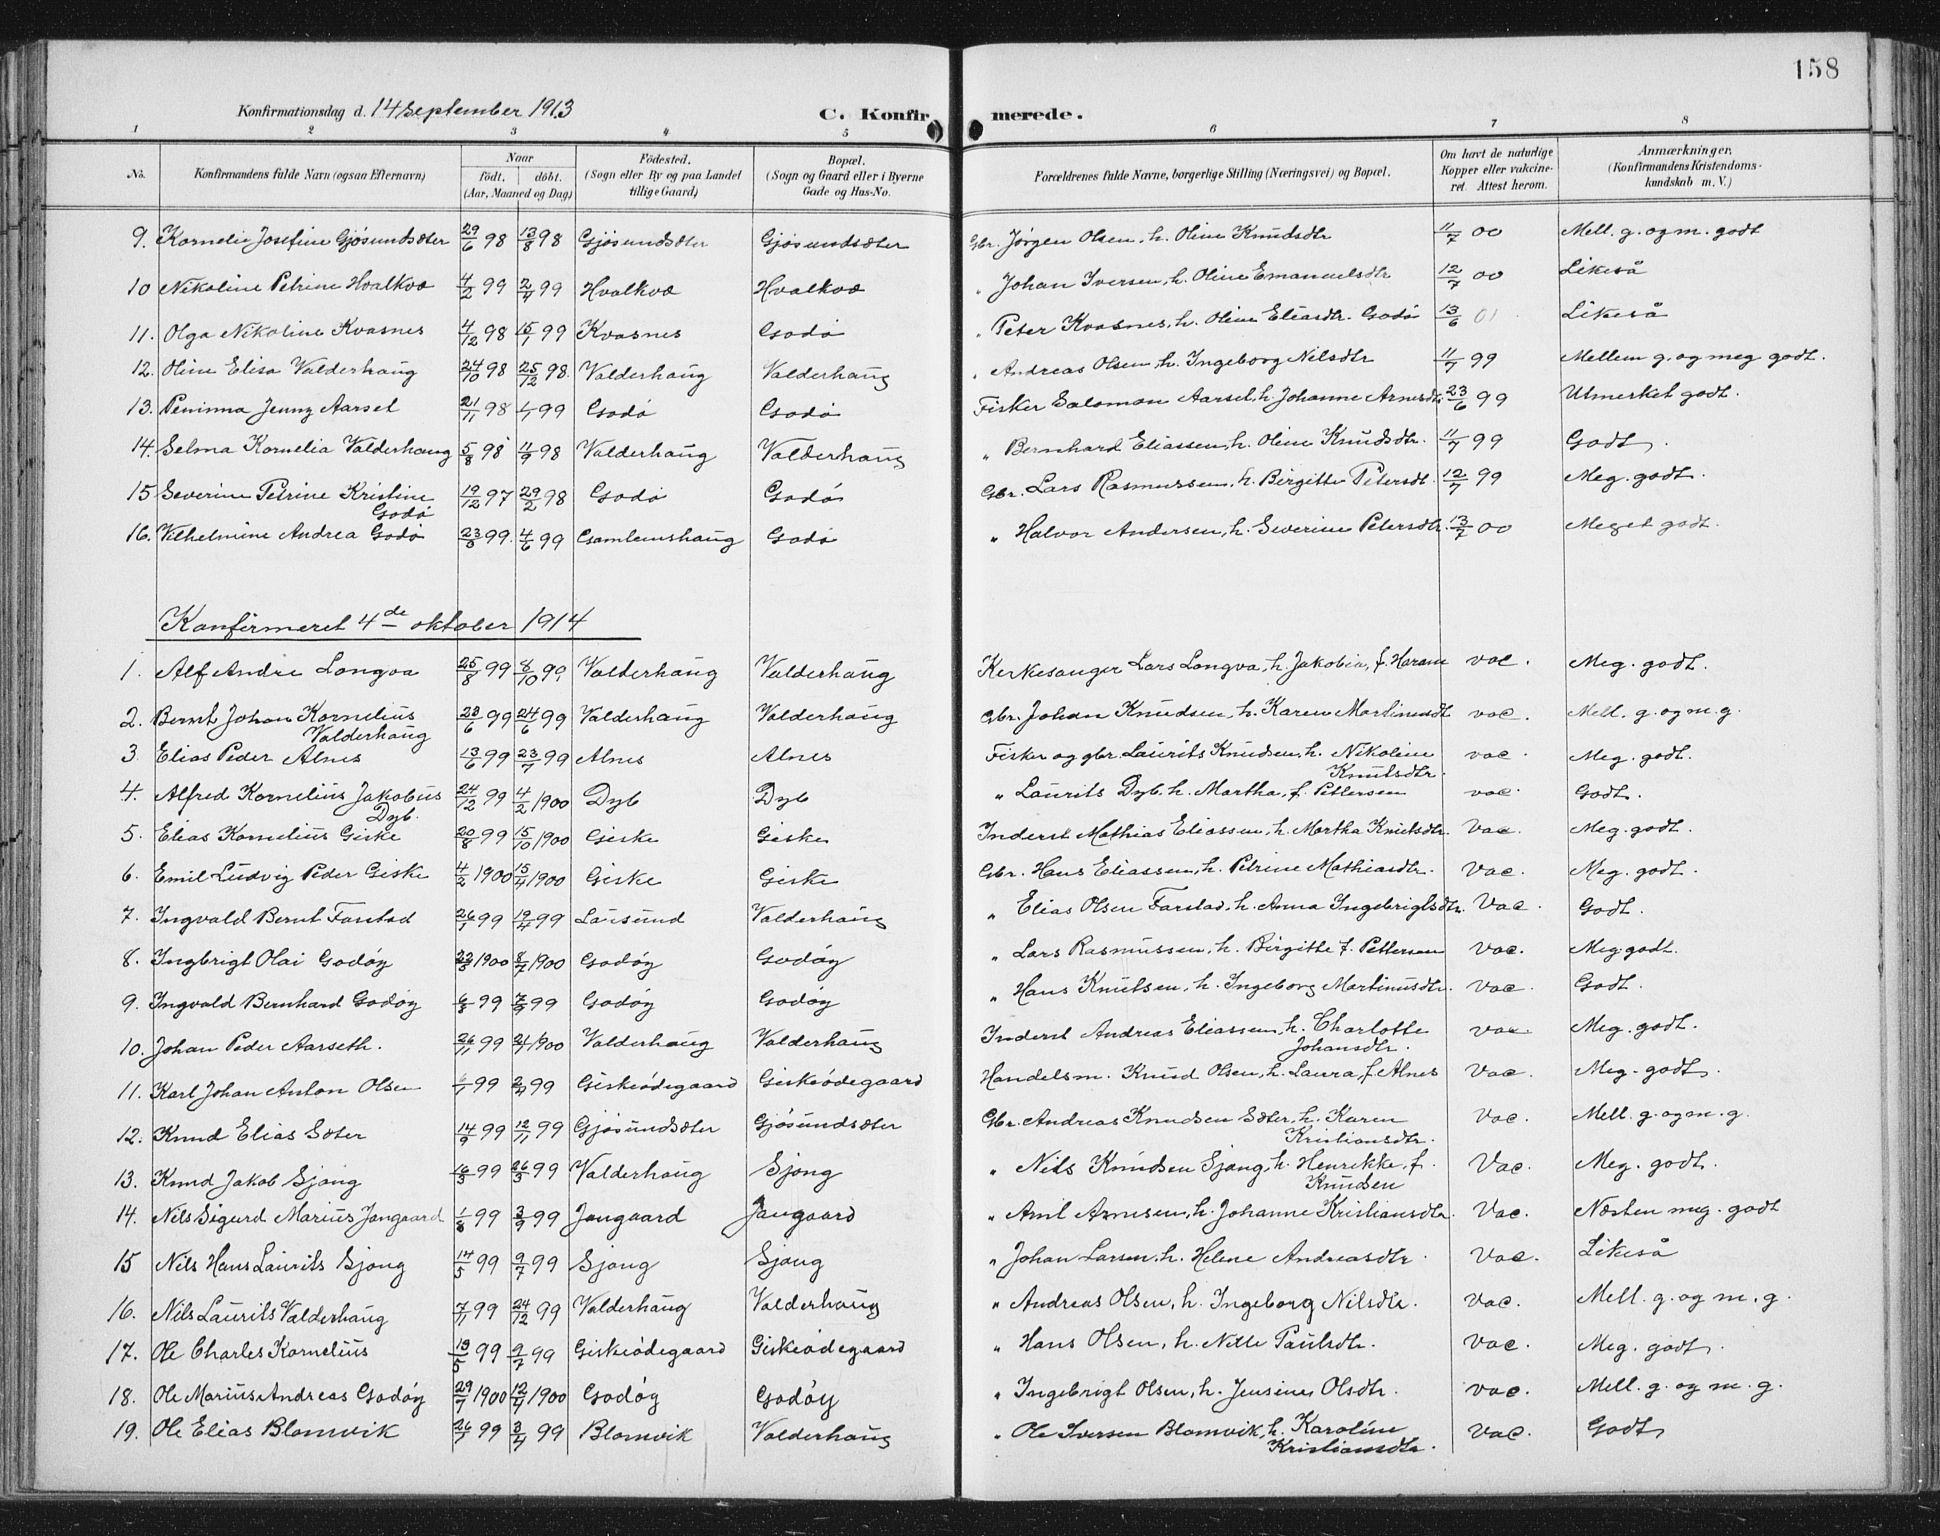 158
Konfirmationsdag d. 14 September 1913 C. Konfirmerede.
1 2 3 4 5 6 7 8
No. Konfirmandens fulde Navn (ogsaa Efternavn) Naar födt. döbt. (Aar, Maaned og Dag) Födested. (Sogn eller By og paa Landet tillige Gaard) Bopæl. (Sogn og Gaard eller i Byerne Gade og Hus-No. Forældrenes fulde Navne, borgerlige Stilling (Næringsvei) og Bopæl. Om havt de naturlige Kopper eller vakcineret. Attest herom. Anmærkninger. (Konfirmandens Kristendomskundskab m. V.)
9. Kornelie Josefine Gjøsundsæter 29/6 98 13/8 98 Gjøsundsæter Gjøsundsæter Gbr. Jørgen Olsen, h. Oline Knudsdtr 11/7 00 Mell. g. og m. godt
10 Nikoline Petrine Hvalkvæ 4/2 99 2/4 99 Hvalkvæ Hvalkvæ " Johan Iversen, h. Oline Emanuelsdtr 12/7 00 Likeså
11. Olga Nikoline Kvasnes 4/12 98 15/1 99 Kvasnes Godø " Peter Kvasnes, h. Oline Eliasdtr. Godø 13/6 01 Likeså
12. Oline Elisa Valderhaug 24/10 98 25/12 98. Valderhaug Valderhaug " Andreas Olsen, h. Ingeborg Nilsdtr 11/7 99 Mellem g. og meg godt.
13. Peninna Jenny Aarset 21/11 98 1/1 99 Godø Godø Fisker Salomon Aarset, h. Johanne Arnesdtr. 23/6 99 Utmerket godt.
14. Selma Kornelia Valderhaug 5/8 98 11/9 98 Valderhaug Valderhaug " Bernhard Eliassen, h. Oline Knudsdtr. 11/7 99 Godt.
15 Severine Petrine Kristine Godø 19/12 97 29/2 98 Godø Godø Gbr. Lars Rasmussen, h. Birgitte Petersdt. 12/7 99 Meg. godt.
16. Vilhelmine Andrea Godø 23/3 99. 4/6 99 Gamlemshaug Godø " Halvor Andersen, h. Severine Petersdtr. 13/7 00 Meget godt.
Konfirmeret 4de oktober 1914
1. Alf Andre Longva 25/8 99 8/10 99 Valderhaug Valderhaug Kirkesanger Lars Longva, h. Jakobia, f. Haram vac. Meg. godt.
2. Bernt Johan Kornelius Valderhaug 23/6 99 24/6 99 Valderhaug Valderhaug Gbr. Johan Knudsen, h. Karen Martinusdt vac. Mell. g. og m. g.
3 Elias Peder Alnes 13/6 99 23/7 99 Alnes Alnes Fisker og gbr. Laurits Knudsen, h. Nikoline Knutsdtr. vac. Meg. godt.
4. Alfred Kornelius Jakobus Dyb. 24/12 99 4/2 1900 Dyb Dyb " Laurits Dyb, h. Martha, f. Pettersen vac. Godt.
5. Elias Kornelius Giske 20/8 99 15/10 1900 Giske Giske Inderst Mathias Eliassen, h. Martha Knutsdtr. Vac. Meg. godt.
6. Emil Ludvig Peder Giske 4/2 1900 15/4 1900 Giske Giske Gbr. Hans Eliassen, h. Petrine Mathiasdtr. Vac. Meg. godt.
7. Ingvald Bernt Farstad 26/1 99 19/4 99 Lausund Valderhaug " Elias Olsen Farstad, h. Anna Ingebrigtsdtr. Vac. Godt.
8. Ingbrigt Olai Godøy 22/5 1900 8/7 1900 Godøy Godøy " Lars Rasmussen, h. Birgitte f. Pettersen Vac. Meg. godt.
9. Ingvald Bernhard Godøy 6/8 99 7/9 99 Godøy Godøy " Hans Knutsen, h. Ingeborg Martinusdtr. Vac. Godt.
10. Johan Peder Aarseth. 26/11 99 21/1 1900 Valderhaug Valderhaug Inderst Andreas Eliassen, h. Charlotte Johansdtr. vac. Meg. godt.
11. Karl Johan Anton Olsen 99 99 Giskeødegaard Giskeødegaard Handelsm. Knud Olsen, h. Laura, f. Alnes Vac. Meg. godt.
12. Knud Elias Sæter 14/9 99 12/11 99 Gjøsundsæter Gjøsundsæter Gbr. Andreas Knudsen Sæter, h. Karen Kristiansdtr. Vac. Mell. g. og m. g.
13. Knud Jakob Sjong 16/3 99 26/3 99 Valderhaug Sjong " Nils Knudsen Sjong, h. Henrikke, f. Knudsen Vac. Meg. godt.
14. Nils Sigurd Marius Jangaard 1/8 99 3/9 99 Jangaard Jangaard " Anil Arnesen, h. Johanne Kristiansdtr. Vac. Næsten meg. godt
15 Nils Hans Laurits Sjong 14/5 99 9/7 99 Sjong Sjong " Johan Larsen, h. Helene Andreasdtr. Vac. Likeså
16. Nils Laurits Valderhaug 7/11 99 24/12 99 Valderhaug Valderhaug " Andreas Olsen, h. Ingeborg Nilsdtr. Vac. Mell. g. og m. g.
17. Ole Charles Kornelius 13/5 99 9/7 99 Giskeødegaard Giskeødegaard " Hans Olsen, h. Nille Paulsdtr. vac. Meg. godt.
18. Ole Marius Andreas Godøy 29/1 1900 12/4 1900 Godøy Godøy " Ingebrigt Olsen, h. Jensine Olsdtr. vac. Mell. g. og m. g.
19. Ole Elias Blomvik 26/1 99 3/4 99 Blomvik Valderhaug " Ole Iversen Blomvik, h. Karoline Kristiansdtr. vac. Godt